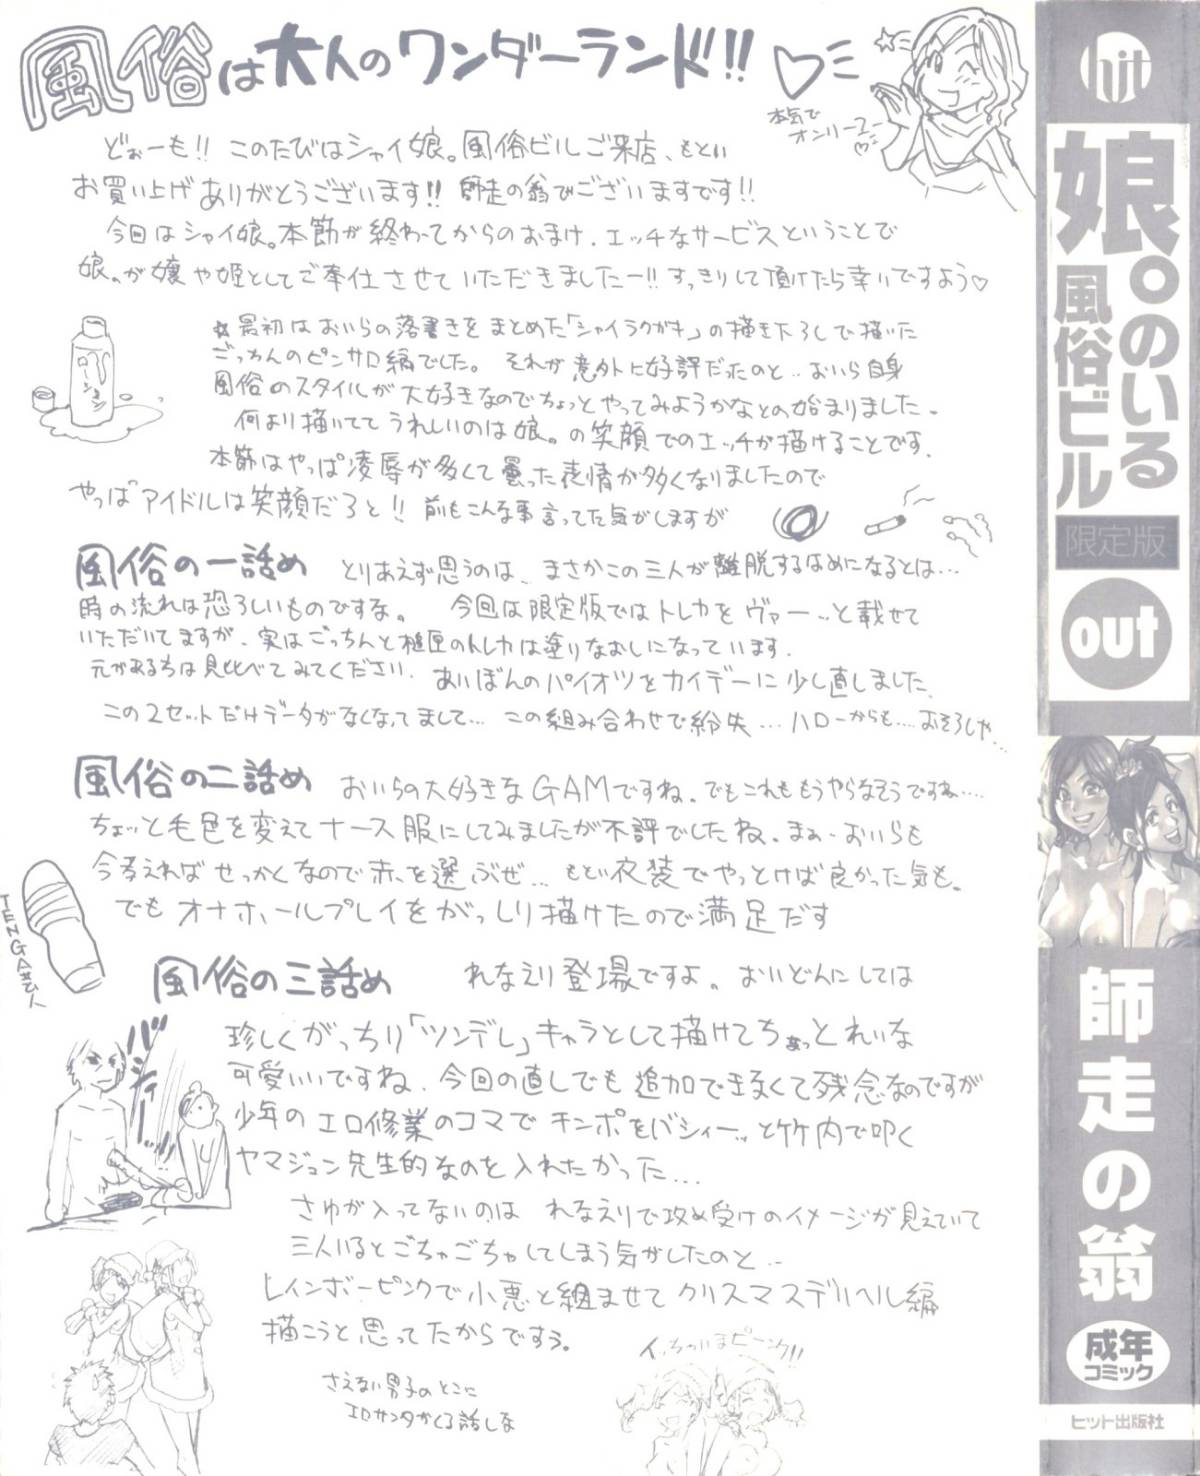 風俗は大人のワンダーランド!!
本気で
オンリーユー
どぉーも!! このたびはシャイ娘。風俗ビルご来店、もとい
お買い上げありがとうございます!! 師走の翁でございますです!!
今回はシャイ娘。本節が終わってからのおまけ、エッチなサービスということで
娘。が嬢や姫としてご奉仕させていただきましたー!! すっきりして頂けたら幸いですよう♡
ローション
★最初はおいらの落書きをまとめた「シャイラクガキ」の描き下ろしで描いた
ごっちんのピンサロ編でした。 それが意外に好評だったのと‥おいら自身
風俗のスタイルが大好きなのでちょっとやってみようかなとの始まりました。
何より描いててうれしいのは娘。の笑顔でのエッチが描けることです。
本節はやっぱ凌辱が多くて曇った表情が多くなりましたので
やっぱアイドルは笑顔だろと!! 前もこんな事言ってた気がしますが
風俗の一話め とりあえず思うのは、まさかこの三人が離脱するはめになるとは…
時の流れは恐ろしいものですな。 今回は限定版ではトレカをヴァーッと載せて
いただいてますが、実はごっちんと のトレカは塗りなおしになっています。
元がある方は見比べてみてください。あいぼんのパイオツをカイデーに少し直しました。
この2セットだけデータがなくなってまして… この組み合わせで紛失…ハローからも…おそろしや…
風俗の二話め おいらの大好きなGAMですね。でもこれももうやらなそうですね…
ちょっと毛色を変えてナース服にしてみましたが不評でしたね。まぁ‥おいらも
今考えればせっかくなので赤を選ぶぜ…もとい衣装でやっとけば良かった気も。
でもオナホールプレイをがっしり描けたので満足だす
TENGA芸人
風俗の三話め れなえり登場ですよ。おいどんにしては
珍しくがっちり「ツンデレ」キャラとして描けてちょっとれいな
可愛いいですね。今回の直しでも追加できなくて残念なのですが
少年のエロ修業のコマでチンポをバシィーッと竹内で叩く
ヤマジュン先生的なのを入れたかった…
バシィーッ
さゆが入ってないのは れなえりで攻め受けのイメージが見えていて
三人いるとごちゃごちゃしてしまう気がしたのと‥
レインボーピンクで小悪と組ませてクリスマスデリヘル編
描こうと思ってたからですぅ。
さえない男子のとこに
エロサンタがくる話しな
イッちゃいまピーンク!!
hit
娘。のいる
風俗ビル
限定版
out
師走の翁
成年
コミック
ヒット出版社